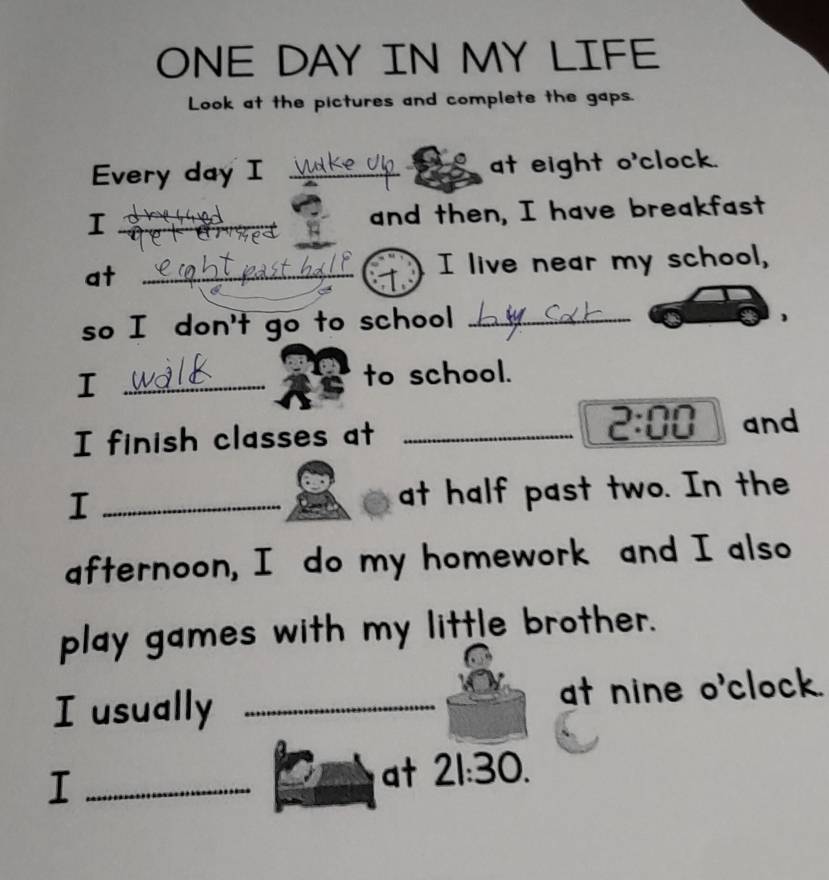 ONE DAY IN MY LIFE
Look at the pictures and complete the gaps.
Every day I wake up at eight o'clock.
I dressed get drssed and then, I have breakfast
at eight past half I live near my school,
so I don't go to school by car ,
I walk to school.
I finish classes at 2:00 and
I at half past two. In the
afternoon, I do my homework and I also
play games with my little brother.
I usually at nine o'clock.
I at 21:30.